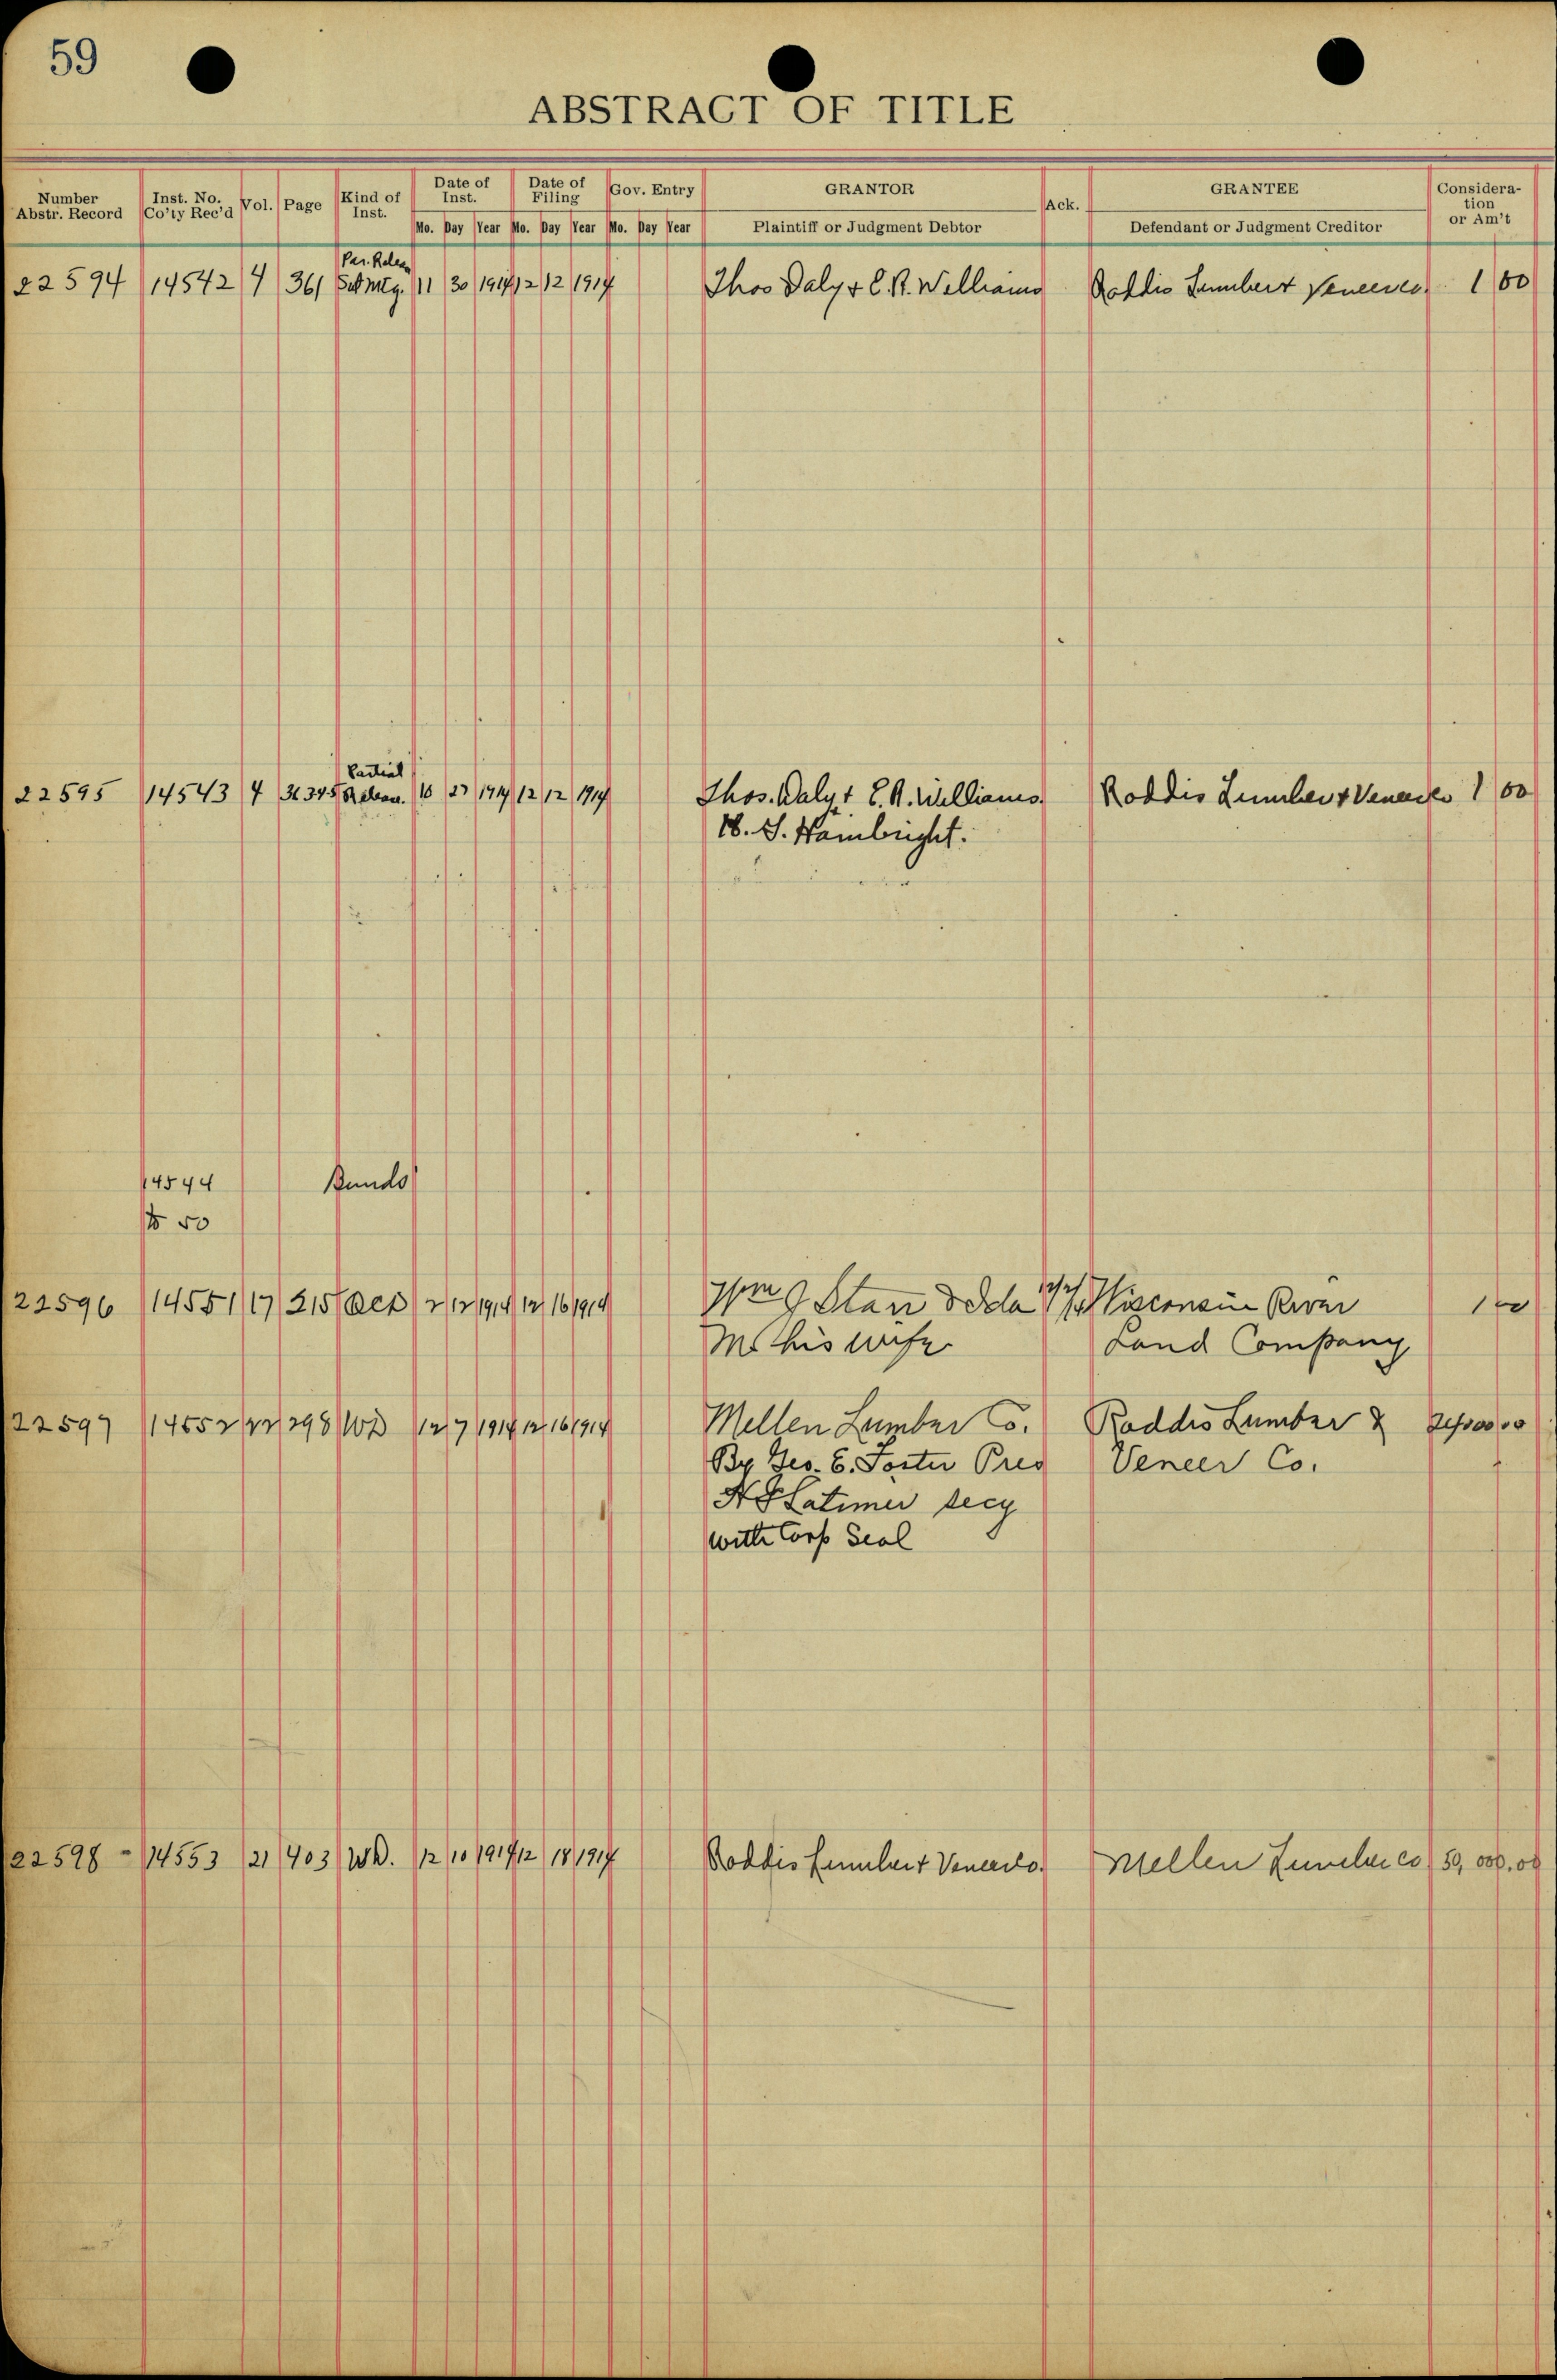 59
ABSTRACT OF TITLE
Number Abstr. Record Inst. No. Co'ty Rec'd Vol. Page Kind of Inst. Date of Inst. Date of Filing Gov. Entry GRANTOR Ack. GRANTEE Consideration or Am't
Mo. Day Year Mo. Day Year Mo. Day Year Plaintiff or Judgment Debtor Defendant or Judgment Creditor
Par. Release
22594 14542 4 361 11 30 1914 12 12 1914 Thos Daly & C.R. Williams Roddis Lumber & Veneer Co. 1 00
Partial
22595 14543 4 Release. 10 27 1914 12 12 1914 Thos. Daly & C.R. Williams. Roddis Lumber & Veneer Co 1 00
H. S. Hambright.
14544 Bonds
to 50
22596 14551 17 215 12 16 1914 Wisconsin River 1 00
his wife Land Company
22597 14552 22 298 WD 12 7 1914 12 16 1914 Mellen Lumber Co. Roddis Lumber &
By Geo. E. Foster Pres Veneer Co.
Latimer secy
with Corp Seal
22598 - 14553 21 403 WD. 12 10 1914 12 18 1914 Roddis Lumber & Veneer Co. Mellen Lumber Co 50,000.00